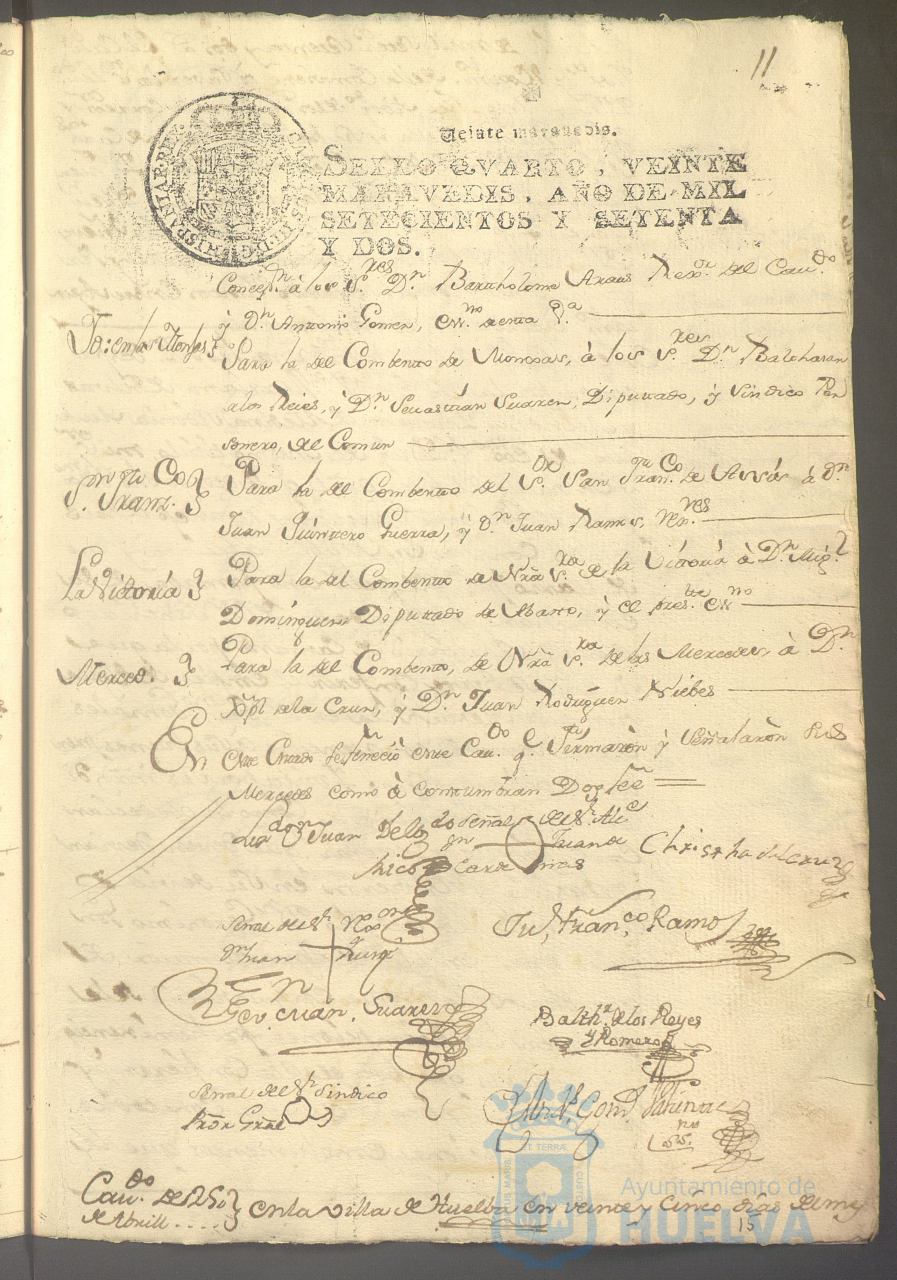 11
Veinte maravedis.
SELLO QVARTO, VEINTE
MARAVEDIS, AÑO DE MIL
SETECIENTOS Y SETENTA
Y DOS.
Concep.n à los S.res D.n Bartholome Araus Rex.or del Cau.do
y D.n Antonio Gomez, ess.no de esta V.a
Para la del Combento de Monxas, à los S.res D.n Balthasar
de los Reies, y D.n Sevastian Suarez, Diputado, y Sindico Per
sonero, del Comun
S.n Fran.co
Para la del Combento del S.or San Fran.co de Assis à D.n
Juan Quintero Guerra, y D.n Juan Ramos, Rex.res
La Victoria
Para la del Combento de Nrã S.ra de la Victoria à D.n Mig.l
Dominguez Diputado de Abasto, y el pres.te ess.no
Merced.
Para la del Combento, de Nrã S.ra de las Mercedes, à D.n
Xpl de la Cruz, y D.n Juan Rodriguez Niebes
En este Estado se feneciò este Cau.do q. firmaron y señalaron sus
Mercedes como à costumbran Doy fee
Juan Delg.do
Señal del S.r Alc.e
Juan de
Cardenas
Rico
Christ de la Cruz
Señal del S.r
D.n Juan
Ju, Fran.co Ramos
Sevastian Suarez
Balth.r de los Reyes
y Romero
Señal del S.r Sindico
Pror Gral
Cau.do de 25
de Abrill....
en la Villa de Huelba en veinte y Cinco dias del mes
15
Ayuntamiento de
HUELVA